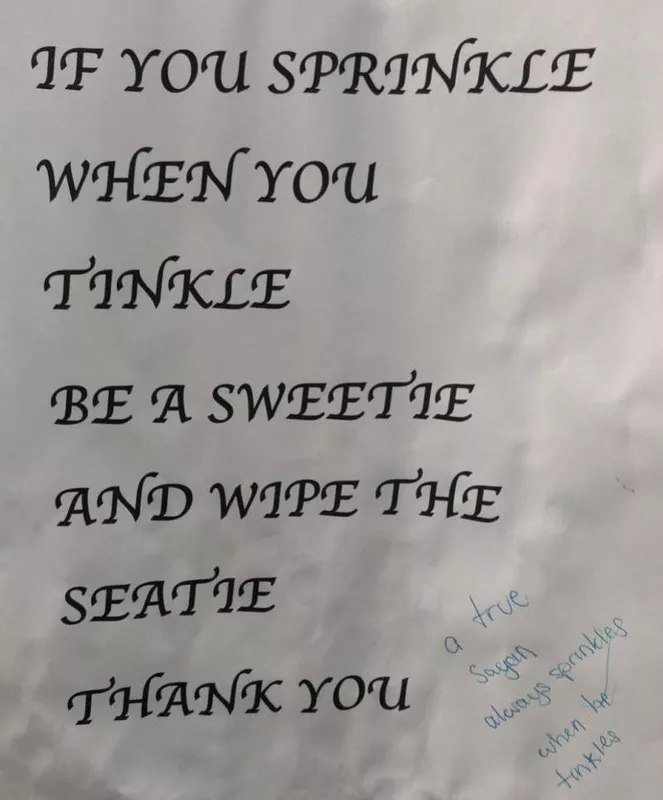 IF YOU SPRINKLE
WHEN YOU
TINKLE
BE A SWEETIE
AND WIPE THE
SEATIE
THANK YOU
a true
Sayan
always sprinkles
when he
tinkles